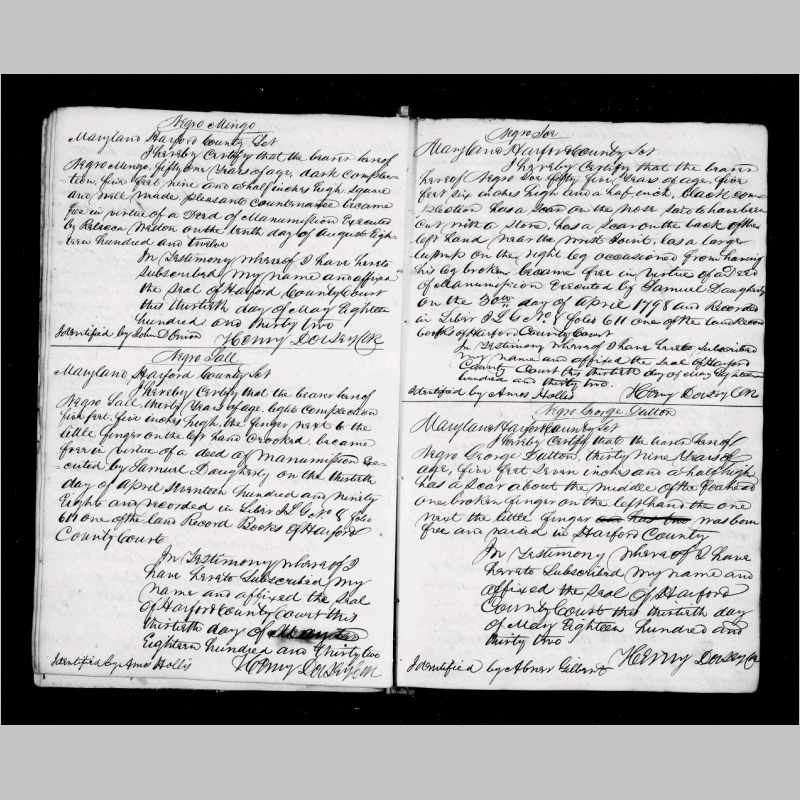 Negro Mingo
Maryland Harford County Set
I hereby Certify that the bearer hereof
Negro Mingo, fifty one Years of age, dark comple-
tion, five feet nine and a half inches high, square
and well made, pleasant Countenance became
free in virtue of a Deed of Manumission Executed
by Rebecca Weston on the tenth day of August Eigh-
teen hundred and twelve
In Testimony where of I have hereto
subscribed my name and affixed
the seal of Harford County Court
this thirtieth day of May Eighteen
hundred and thirty two
Identified by John D Henry Dorsey Clk
Negro Sall
Maryland, Harford County Set
I hereby Certify that the bearer hereof
Negro Sall thirty Years of age, light Complection
five feet five inches high, the finger next to the
little finger on the left hand Crooked, became
free in virtue of a deed of Manumission Exe-
cuted by Samuel Daugherty on the thirtieth
day of April Seventeen hundred and Ninety
Eight and recorded in Liber JLG No 8 folio
611 one of the land Record Books of Harford
County Court
In Testimony where of I
have hereto Subscribed my
name and affixed the Seal
of Harford County Court this
thirtieth day of May
Eighteen hundred and thirty two
Identified by Amos Hollis Henry Dorsey Clk
Negro Joe
Maryland Harford County Set
I hereby Certify that the bearer
hereof Negro Joe fifty five Years of age, five
feet six inches high and a half inch, black com-
plection has a Scar on the Nose Said to have been
Cut with a Stone, has a Scar on the back of the
left hand near the wrist Joint, has a large
lump on the right leg occasioned from having
his leg broken became free in virtue of a Deed
of Manumission Executed by Samuel Daugherty
on the 30th day of April 1798 and Recorded
in Liber JLG No 8 folio 611 one of the land Record
books of Harford County Court
In Testimony where of I have hereto Subscribed
my name and affixed the Seal of Harford
County Court this thirtieth day of May Eighteen
hundred and thirty two.
Identified by Amos Hollis Henry Dorsey Clk
Negro George Dutton
Maryland Harford County Set
I hereby Certify that the bearer hereof
Negro George Dutton, thirty nine Years of
age, five feet Seven inches and a half high
has a Scar about the middle of the forehead
one broken finger on the left hand the one
next the little finger and has one was born
free and raised in Harford County
In Testimony where of I have
hereto Subscribed my name and
affixed the Seal of Harford
County Court this thirtieth day
of May Eighteen hundred and
thirty two
Identified by Abner Gilbert Henry Dorsey Clk